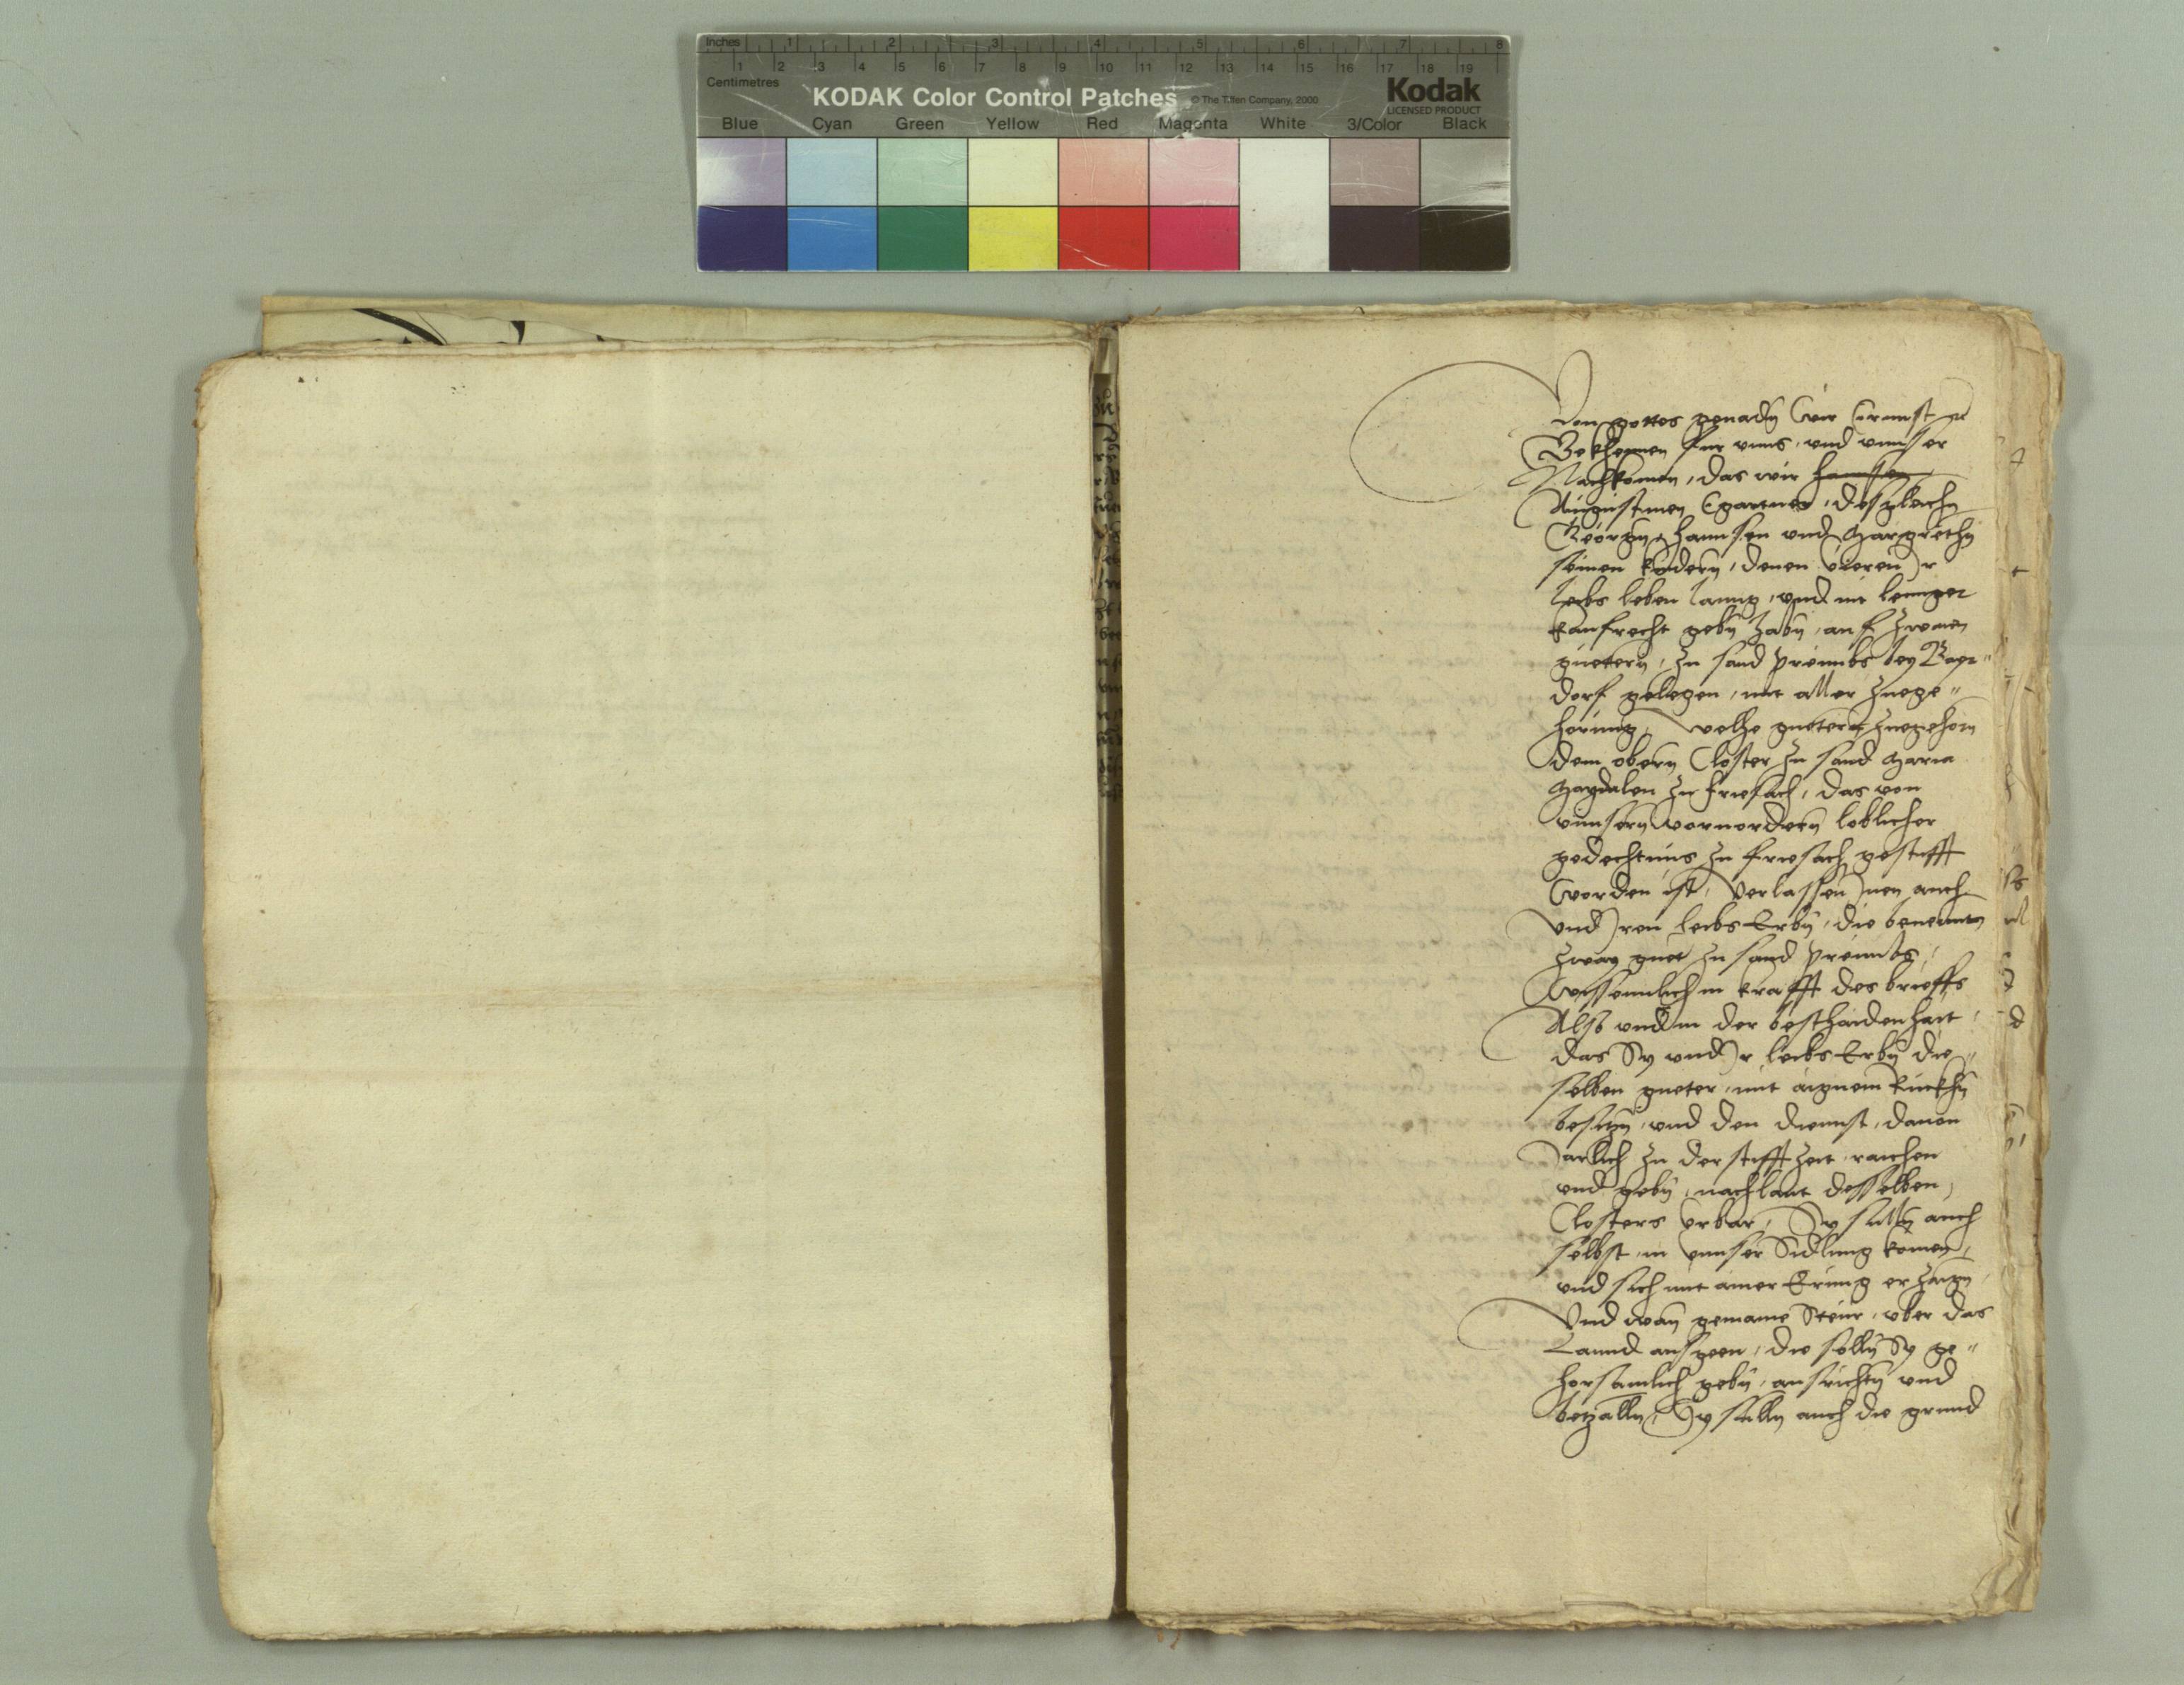 Inches 1 2 3 4 5 6 7 8
1 2 3 4 5 6 7 8 9 10 11 12 13 14 15 16 17 18 19
Centimetres
KODAK Color Control Patches © The Tiffen Company, 2000 Kodak
LICENSED PRODUCT
Blue Cyan Green Yellow Red Magenta White 3/Color Black
Von gottes genadn Wir Ernnst etc
Bekhennen fur vnns, vnd vnnser
Nachkomen, das wir hannsen
Augustinen Egartner, desgleichn
Geörgn, Hannsen vnd Margrethn
seinen kindern, denen vieren Ir
leibs leben lanng, vnd nit lennger
kaufrecht gebn habn, auf zwaien
guetern, zu sand Preimbs bey
dorf gelegen, mit aller zuege"
hörung, welhe gueter zuegehorn
dem obern Closter zu sand Maria
Magdalen zu Friesach, das von
vnnsern vorvordern loblicher
gedechtnus zu Friesach gestifft
worden ist, Verlassen Inen auch
vnd Iren leibs Erbn, die benennten
zway guet zu sand Preimbs,
Wissennlich in krafft des brieffs
Also vnd in der beschaidenhait,
das Sy vnd Ir leibs Erbn die"
selben gueter, mit aignem Rückhn
besitzn, vnd den diennst, dauon
Jarlich zu der stifft zeit raichen
vnd gebn, nach laut desselben
Closters vrbar, Sy sulln auch
selbst in vnnser Sidlung komen,
vnd sich mit ainer Erung erzaign,
Vnd wan gemaine Steur, vber das
Lannd ausgeen, die solln Sy ge"
horsamlich gebn, ausrichtn vnd
betzalln, Sy sulln auch die grund